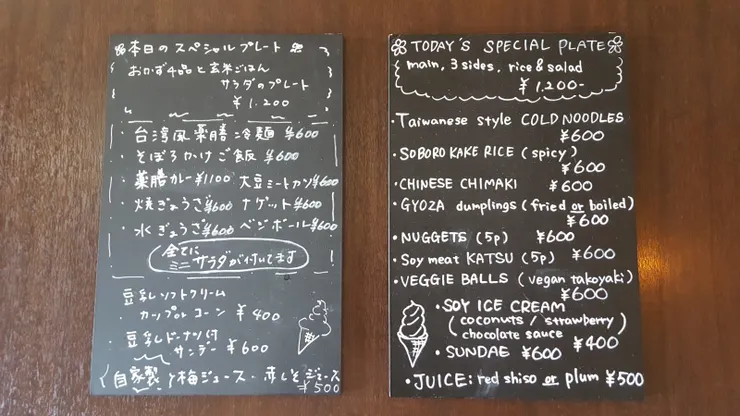 本日のスペシャルプレート
おかず4品と玄米ごはん
サラダのプレート
¥1.200
・台湾風薬膳冷麺 ¥600
・そぼろかけご飯 ¥600
・薬膳カレー¥1100 大豆ミートカツ¥600
・焼ぎょうざ¥600 ナゲット¥600
・水ぎょうざ¥600 ベジボール¥600
全てに
ミニサラダが付いてます
豆乳ソフトクリーム
カップorコーン ¥400
・豆乳ドーナツ付
サンデー ¥600
自家製 梅ジュース・赤しそジュース
¥500
TODAY'S SPECIAL PLATE
main, 3 sides, rice & salad
¥1,200-
・Taiwanese style COLD NOODLES
¥600
・SOBORO KAKE RICE (spicy)
¥600
・CHINESE CHIMAKI ¥600
・GYOZA dumplings (fried or boiled)
¥600
・NUGGETS (5p) ¥600
・Soy meat KATSU (5p) ¥600
・VEGGIE BALLS (vegan takoyaki)
¥600
・SOY ICE CREAM
(coconuts / strawberry)
chocolate sauce
¥400
・SUNDAE ¥600
・JUICE: red shiso or plum ¥500